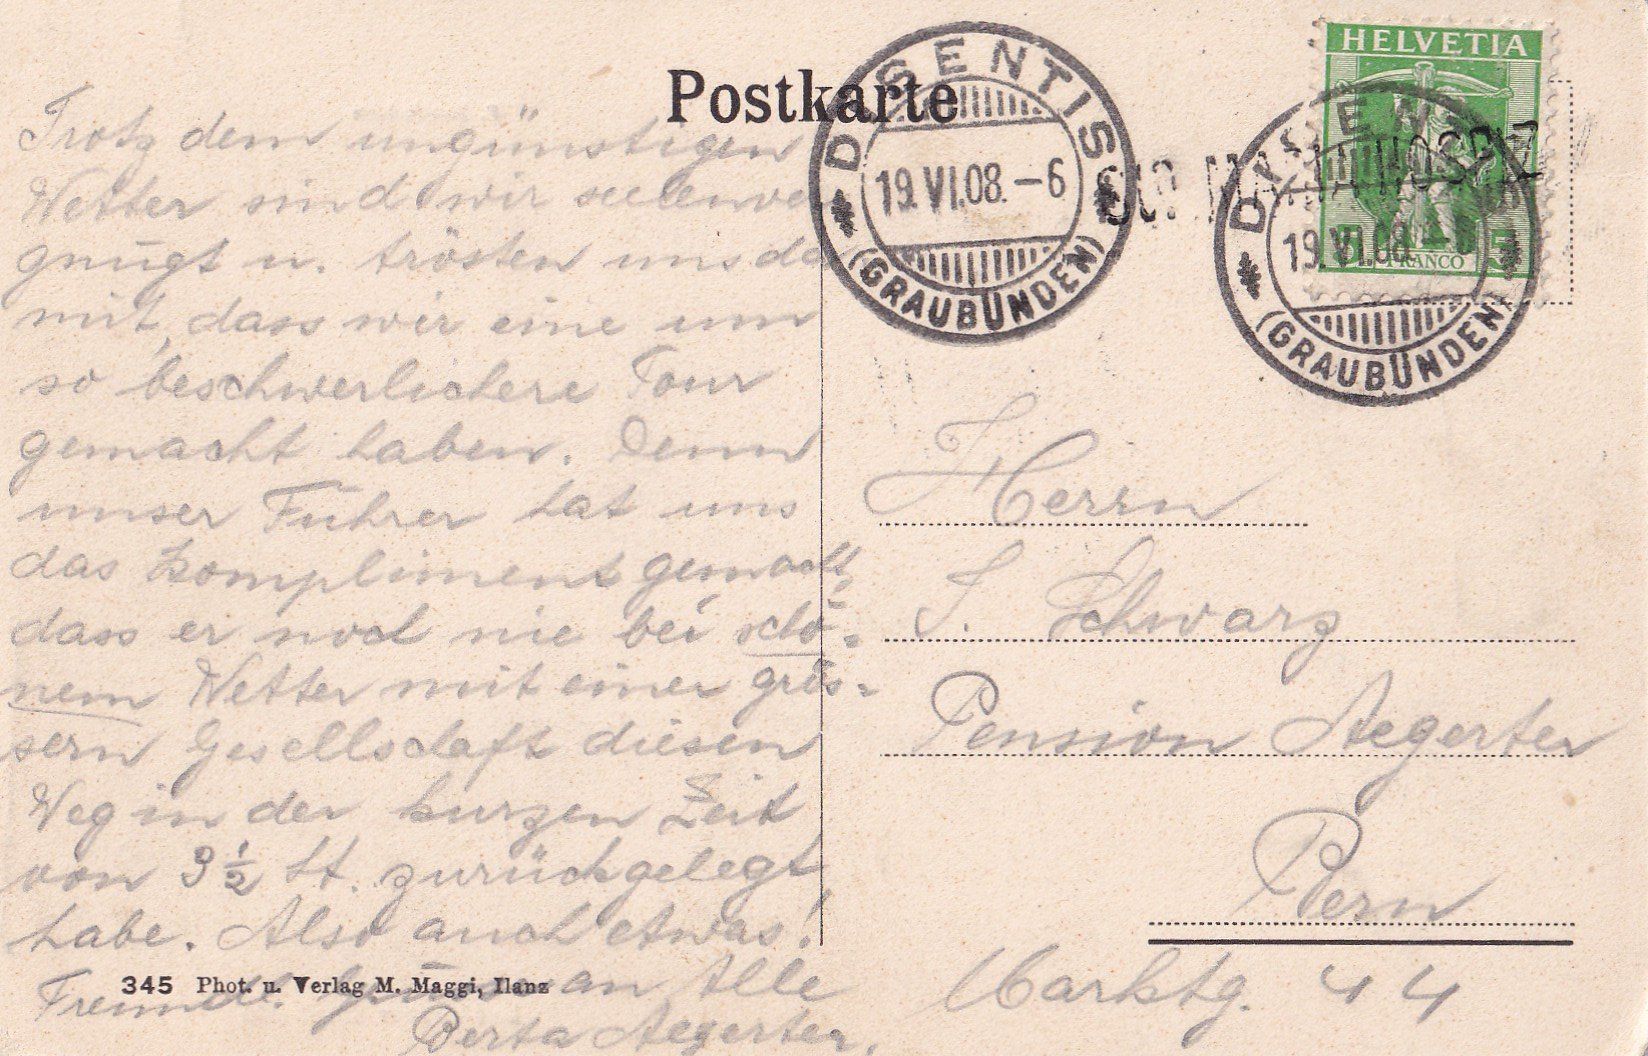 Postkarte
HELVETIA
5 FRANCO 5
DISENTIS
19.VI.08.-6
(GRAUBÜNDEN)
DISENTIS
19.VI.08.-6
(GRAUBÜNDEN)
Trotz dem ungünstigen
Wetter sind wir seelenver
gnügt u. trösten uns da
mit, dass wir eine um
so beschwerlichere Tour
gemacht haben. Denn
unser Führer hat uns
das Kompliment gemacht,
dass er noch nie bei schö-
nem Wetter mit einer grös-
sern Gesellschaft diesen
Weg in der kurzen Zeit
von 3 ½ St. zurückgelegt
habe. Also auch etwas!
Freundl. Grüsse an Alle
Berta Aegerter.
Herrn
J. Schwarz
Pension Aegerter
Bern
Marktg. 44
345 Phot. u. Verlag M. Maggi, Ilanz